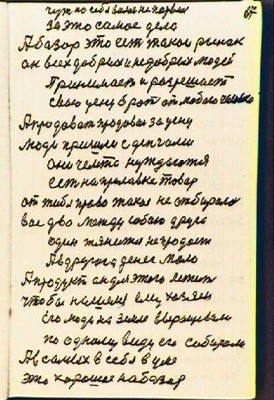 67
За это самое дело
А базар это есть такой рынок
он всех добрых и недобрых людей
Принимает и разрешает
свою цену в рот от любого человека
А продавать продовал за цену
люди пришли с деньгами
они чемто нуждаются
есть на прилавке товар
от тебя право такое не отбирало
вас два между собою друга
один тянется не продаст
А в другого денег мало
А продукт он для этого лежит
чтобы нашелся ему хозяин
Его люди на земле выращивали
по одному виду его собирали
А в самых в себя в уме
это хорошее на базар